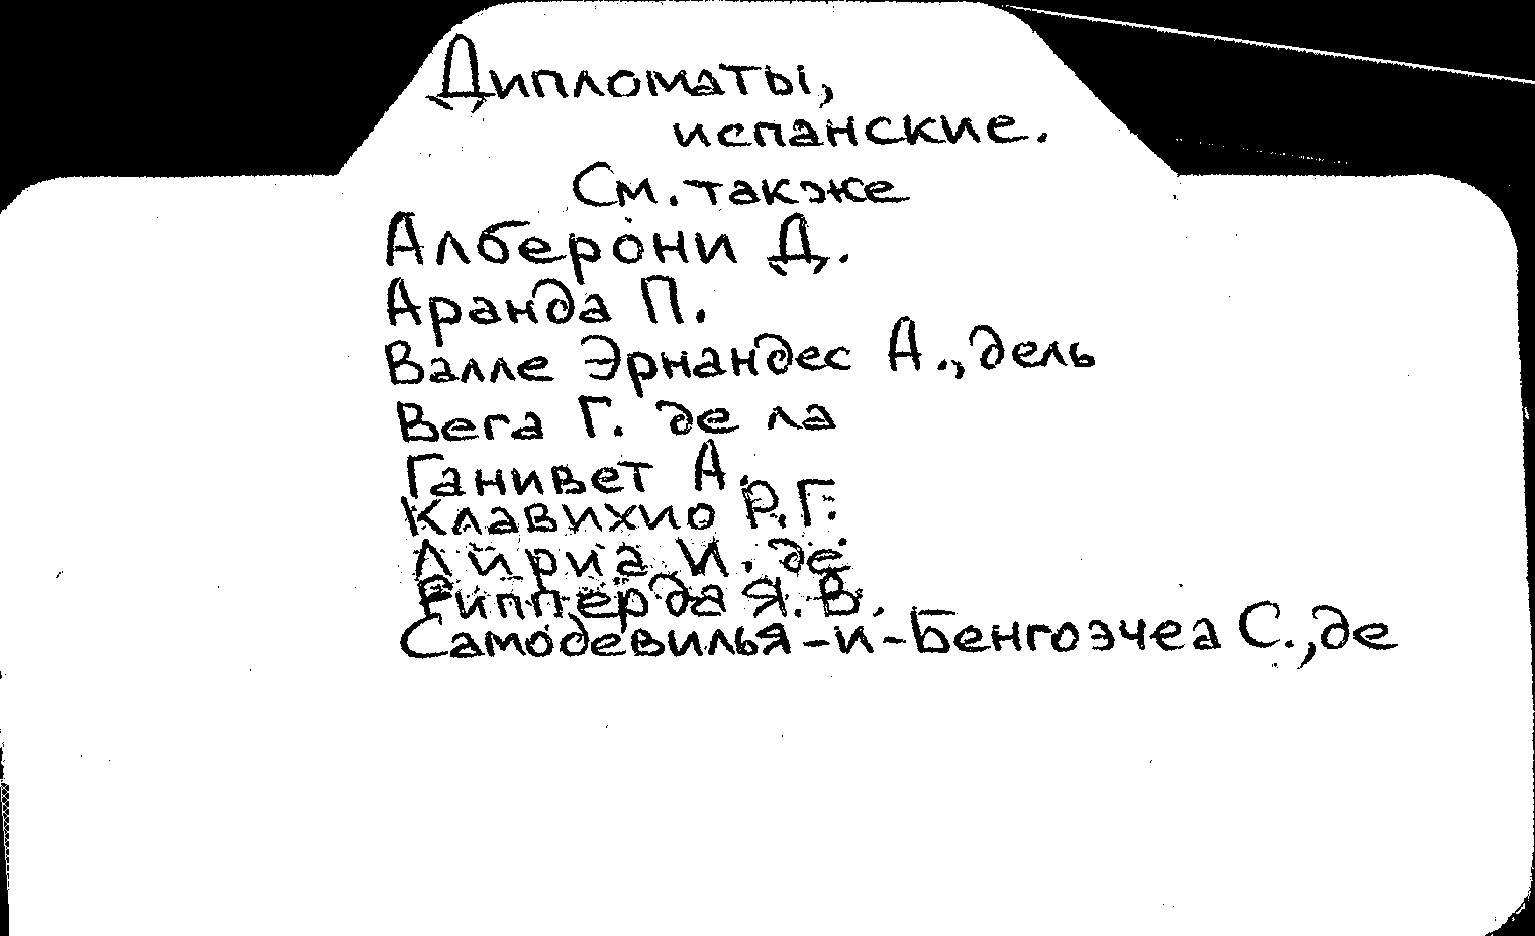 Дипломаты,
испанские.
См. также
Алберони Д.
Аранда П.
Валле Эрнандес А., дель
Вега Г. де ла
Ганивет А.
Клавихио Р.Г.
Айриа И. де
Рипперда Я.В.
Самодевилья-и-Бенгоэчеа С., де